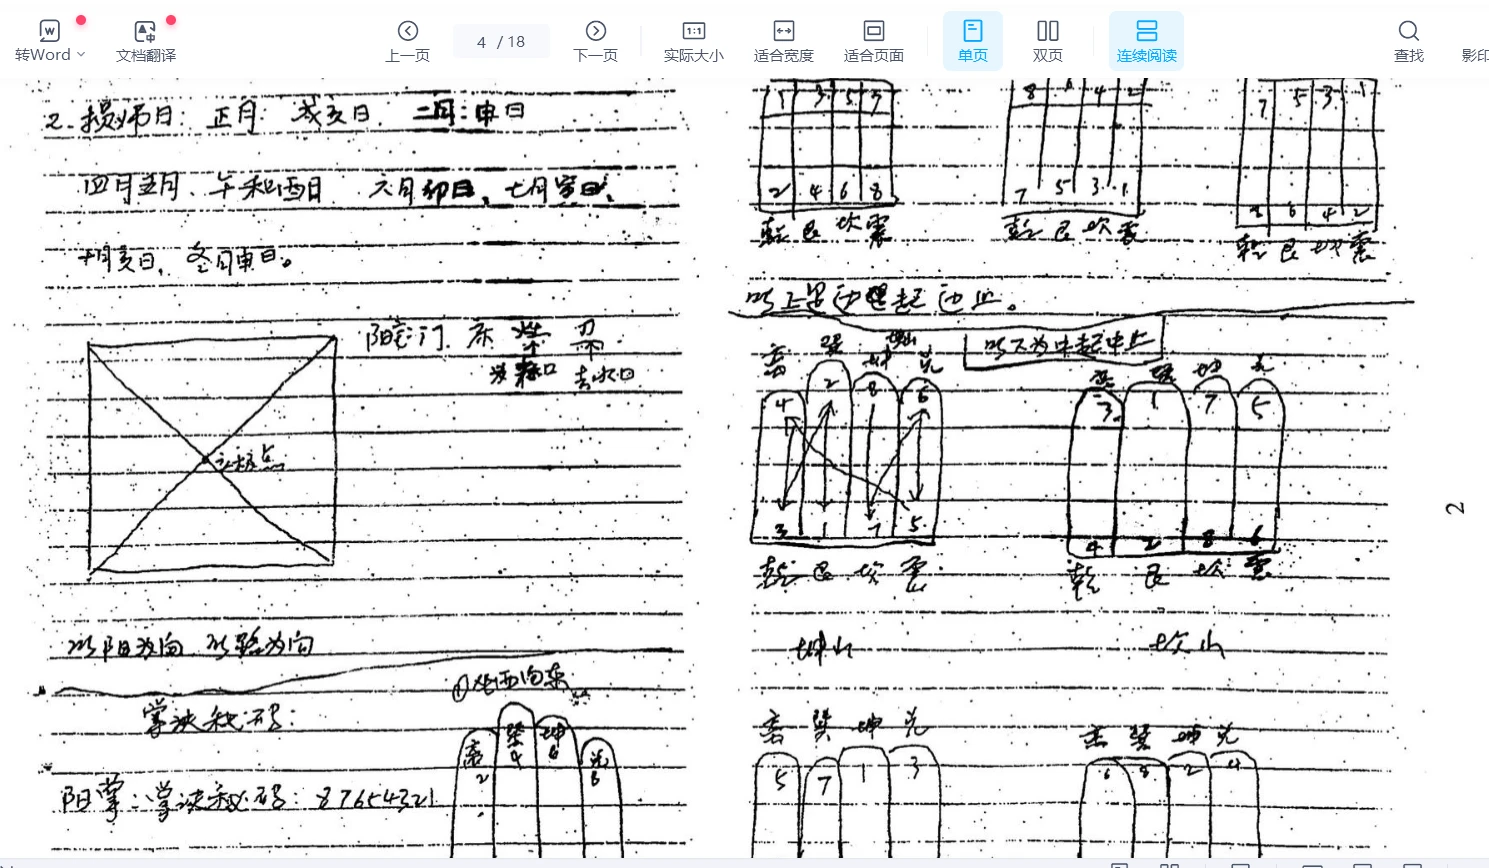 转Word
文档翻译
上一页
4 / 18
下一页
1:1
实际大小
适合宽度
适合页面
单页
双页
连续阅读
查找
影印
日: 正月 戌亥日. 二月:申日
四月五月、午和酉日 六月卯日、七月寅日、
十月亥日, 冬月申日。
阳宅: 门. 床
去水口
立极点
以阳为向 以路为向
①坐西向东
掌诀秘码:
离 巽 坤 兑
2 4 6 8
阳掌: 掌诀秘码: 87654321
1 3 5 7
2 4 6 8
乾 艮 坎 震
8 6 4 2
7 5 3 1
乾 艮 坎 震
7 5 3 1
8 6 4 2
乾 艮 坎 震
以上是边起边止。
以下为中起中止
离 巽 坤 兑
4 2 8 6
3 1 7 5
乾 艮 坎 震
坤山
离 巽 坤 兑
3 1 7 5
4 2 8 6
乾 艮 坎 震
坎山
2
离 巽 坤 兑
5 7 1 3
离 巽 坤 兑
6 8 2 4